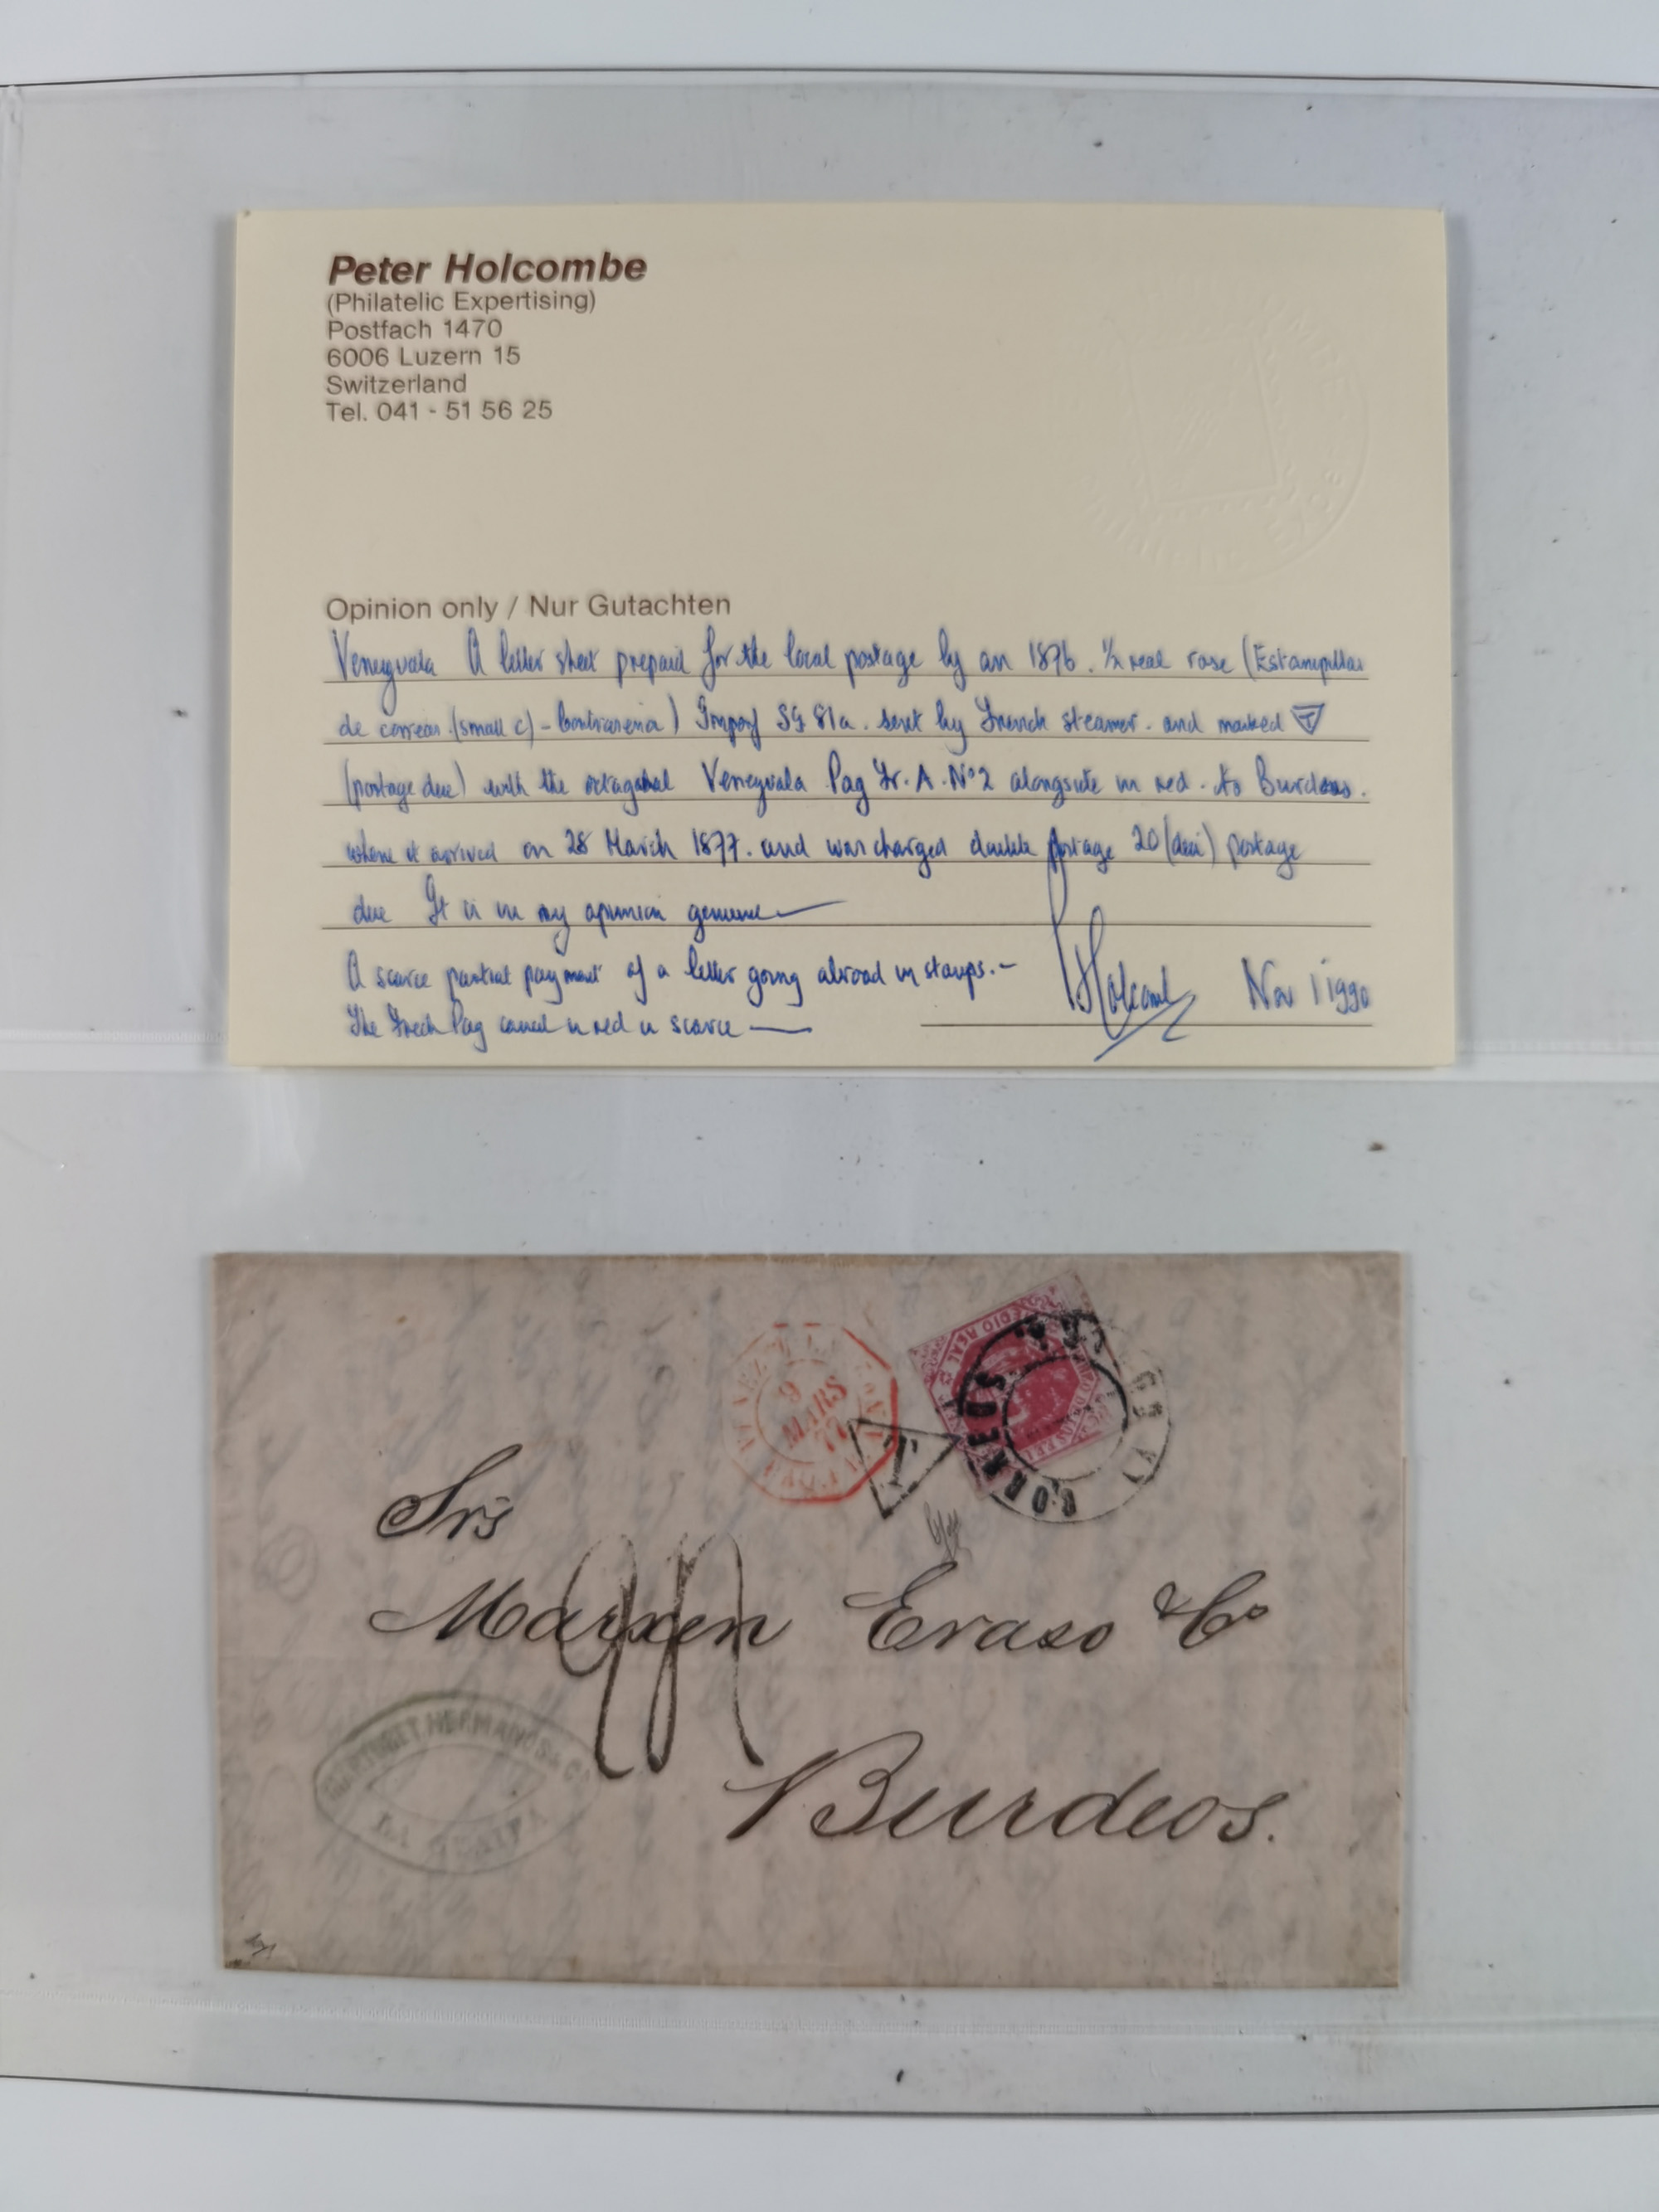 Peter Holcombe
(Philatelic Expertising)
Postfach 1470
6006 Luzern 15
Switzerland
Tel. 041 - 51 56 25
Opinion only / Nur Gutachten
Venezuala A letter sheet prepaid for the local postage by an 1876. ½ real rose (Estampillas
de correos. (small c) - Contrasena) Imperf SG 81a. sent by French steamer. and marked T
(postage due) with the octagonal Venezuala Paq Fr. A. No 2 alongside in red. to Burdeos.
where it arrived on 28 March 1877. and was charged double postage 20 (deci) postage
due It is in my opinion genuine
A scarce partial payment of a letter going abroad in stamps. -
The Frech Paq cancel in red is scarce
PHolcombe Nov 1 1990
MEDIO REAL
CORREOS LA GUAIRA
VENEZUELA
9
MARS
77
T
Srs
Marxen Eraso & Co
HERMANOS & Co
LA GUAIRA
Burdeos.